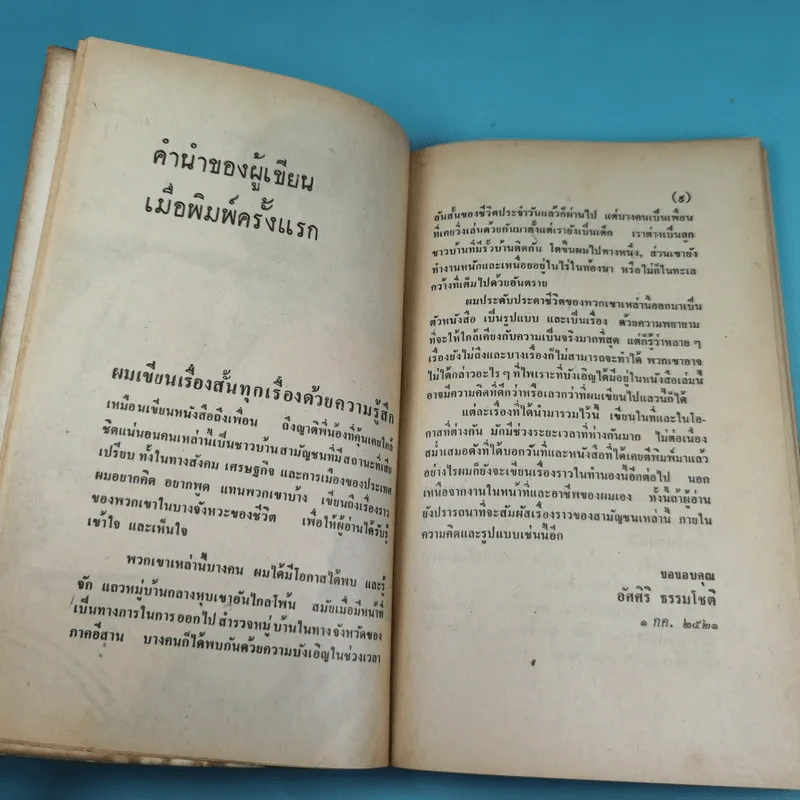 คำนำของผู้เขียน
เมื่อพิมพ์ครั้งแรก
ผมเขียนเรื่องสั้นทุกเรื่องด้วยความรู้สึก
เหมือนเขียนหนังสือถึงเพื่อน ถึงญาติพี่น้องที่คุ้นเคยใกล้
ชิดแน่นอนคนเหล่านี้เป็นชาวบ้านสามัญชนที่มีสถานะที่เสีย
เปรียบ ทั้งในทางสังคม เศรษฐกิจ และการเมืองของประเทศ
ผมอยากคิด อยากพูด แทนพวกเขาบ้าง เขียนถึงเรื่องราว
ของพวกเขาในบางจังหวะของชีวิต เพื่อให้ผู้อ่านได้รับรู้
เข้าใจ และเห็นใจ
พวกเขาเหล่านี้บางคน ผมได้มีโอกาสได้พบ และรู้
จัก แถวหมู่บ้านกลางหุบเขาอันไกลโพ้น สมัยเมื่อมีหน้าที่
เป็นทางการในการออกไปสำรวจหมู่บ้านในทางจังหวัดของ
ภาคอีสาน บางคนก็ได้พบกันด้วยความบังเอิญในช่วงเวลา
(๙)
อันสั้นของชีวิตประจำวันแล้วก็ผ่านไป แต่บางคนเป็นเพื่อน
ที่เคยวิ่งเล่นด้วยกันมาตั้งแต่เรายังเป็นเด็ก เราต่างเป็นลูก
ชาวบ้านที่มีรั้วบ้านติดกัน โตขึ้นผมไปทางหนึ่ง, ส่วนเขายัง
ทำงานหนักและเหนื่อยอยู่ในไร่ในท้องนา หรือไม่ก็ในทะเล
กว้างที่เต็มไปด้วยอันตราย
ผมประดับประดาชีวิตของพวกเขาเหล่านี้ออกมาเป็น
ตัวหนังสือ เป็นรูปแบบ และเป็นเรื่อง ด้วยความพยายาม
ที่จะให้ใกล้เคียงกับความเป็นจริงมากที่สุด แต่ก็รู้ว่าหลาย ๆ
เรื่องยังไม่ถึงและบางเรื่องก็ไม่สามารถจะทำได้ พวกเขาอาจ
ไม่ได้กล่าวอะไร ๆ ที่ไพเราะที่บังเอิญได้มีอยู่ในหนังสือเล่มนี้
อาจมีความคิดที่ดีกว่าหรือเลวกว่าที่ผมเขียนไปแล้วนี้ก็ได้
แต่ละเรื่องที่ได้นำมารวมไว้นี้ เขียนในที่และในโอ-
กาสที่ต่างกัน มักมีช่วงระยะเวลาที่ห่างกันมาก ไม่ต่อเนื่อง
สม่ำเสมอดังที่ได้บอกวันที่และหนังสือที่ได้เคยตีพิมพ์มาแล้ว
อย่างไรผมก็ยังจะเขียนเรื่องราวในทำนองนี้อีกต่อไป นอก
เหนือจากงานในหน้าที่และอาชีพของผมเอง ทั้งนี้ถ้าผู้อ่าน
ยังปรารถนาที่จะสัมผัสเรื่องราวของสามัญชนเหล่านี้ ภายใน
ความคิดและรูปแบบเช่นนี้อีก
ขอขอบคุณ
อัศศิริ ธรรมโชติ
๑ กค. ๒๕๒๑